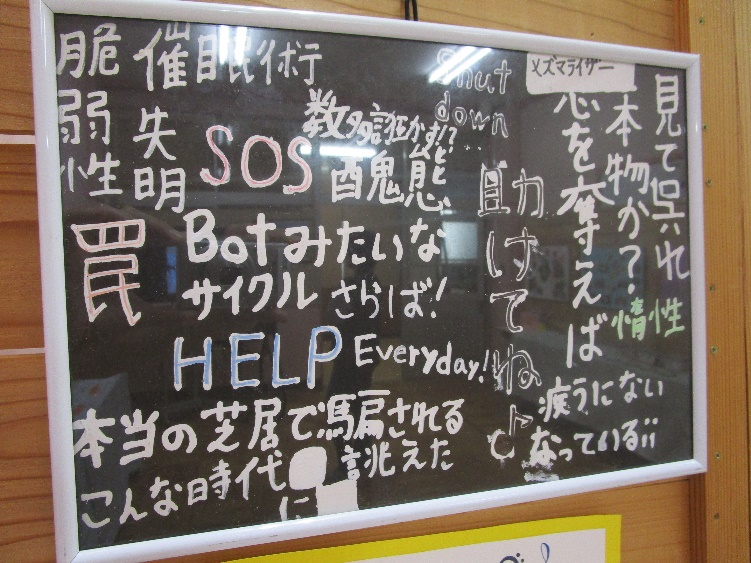 メズマライザー
見て呉れ
本物か?
惰性
恋を奪えば
疲うにない
なっている;;
Shut
down
助けてね♪
数多誑かす!?
醜態
SOS
催眠術
失明
脆弱性
罠
Botみたいな
サイクル さらば!
HELP Everyday!
本当の芝居で騙される
誂えた
こんな時代に